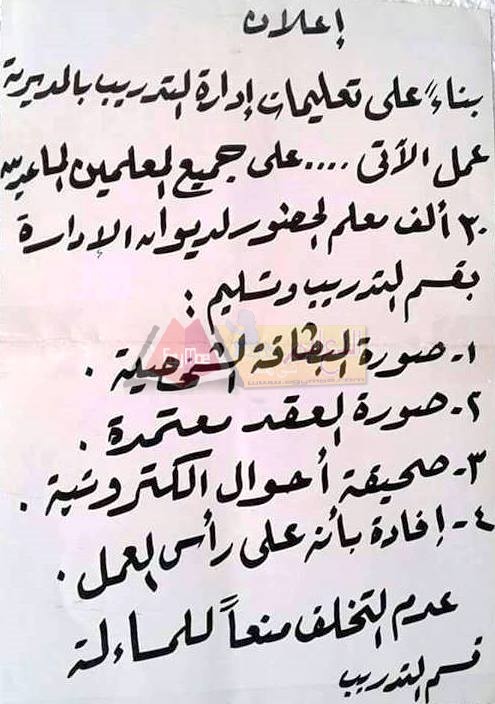 إعلان
بناءً على تعليمات إدارة التدريب بالمديرية
عمل الآتى .... على جميع المعلمين المساعدين
٣٠ ألف معلم الحضور لديوان الإدارة
بقسم التدريب وتسليم :
١- صورة البطاقة الشخصية .
٢- صورة العقد معتمدة .
٣- صحيفة أحوال الكترونية .
٤- إفادة بأنه على رأس العمل .
عدم التخلف منعاً للمساءلة
قسم التدريب